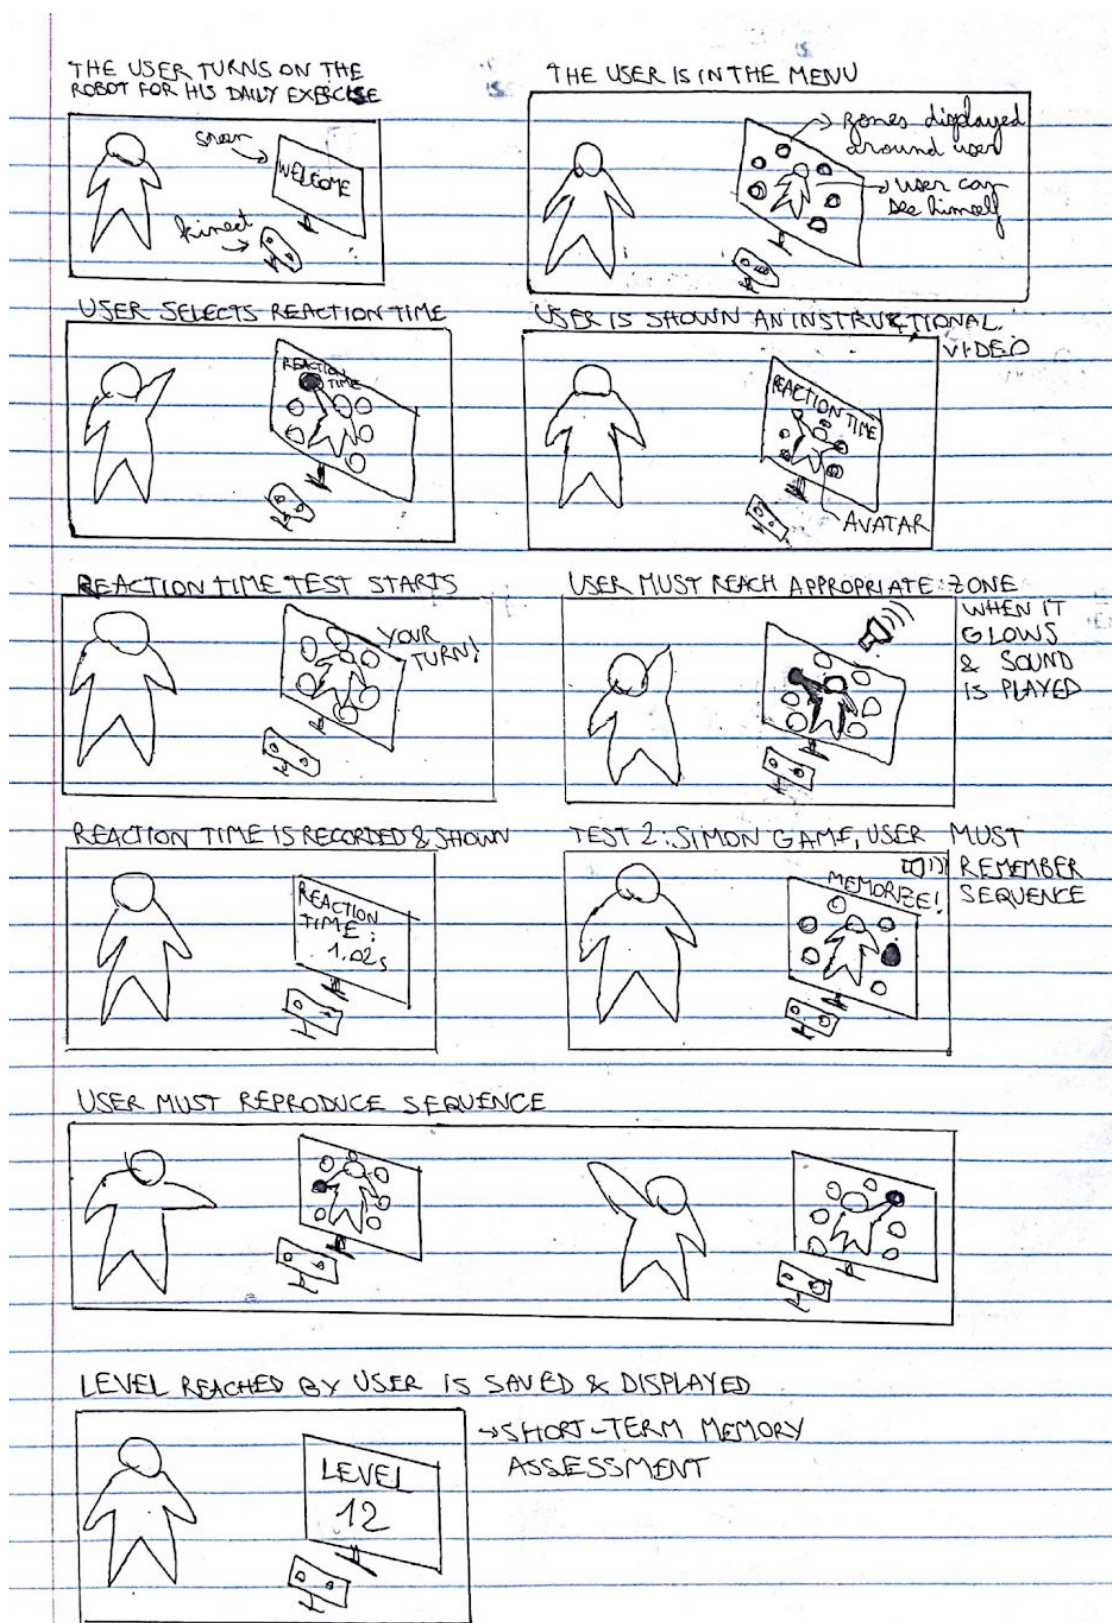 THE USER TURNS ON THE
ROBOT FOR HIS DAILY EXERCISE
screen
WELCOME
kinect
THE USER IS IN THE MENU
zones displayed
around user
user can
see himself
USER SELECTS REACTION TIME
REACTION
TIME
USER IS SHOWN AN INSTRUCTIONAL
VIDEO
REACTION TIME
AVATAR
REACTION TIME TEST STARTS
YOUR
TURN!
USER MUST REACH APPROPRIATE ZONE
WHEN IT
GLOWS
& SOUND
IS PLAYED
REACTION TIME IS RECORDED & SHOWN
REACTION
TIME:
1.02s
TEST 2: SIMON GAME, USER MUST
REMEMBER
SEQUENCE
MEMORIZE!
USER MUST REPRODUCE SEQUENCE
LEVEL REACHED BY USER IS SAVED & DISPLAYED
LEVEL
12
→ SHORT-TERM MEMORY
ASSESSMENT